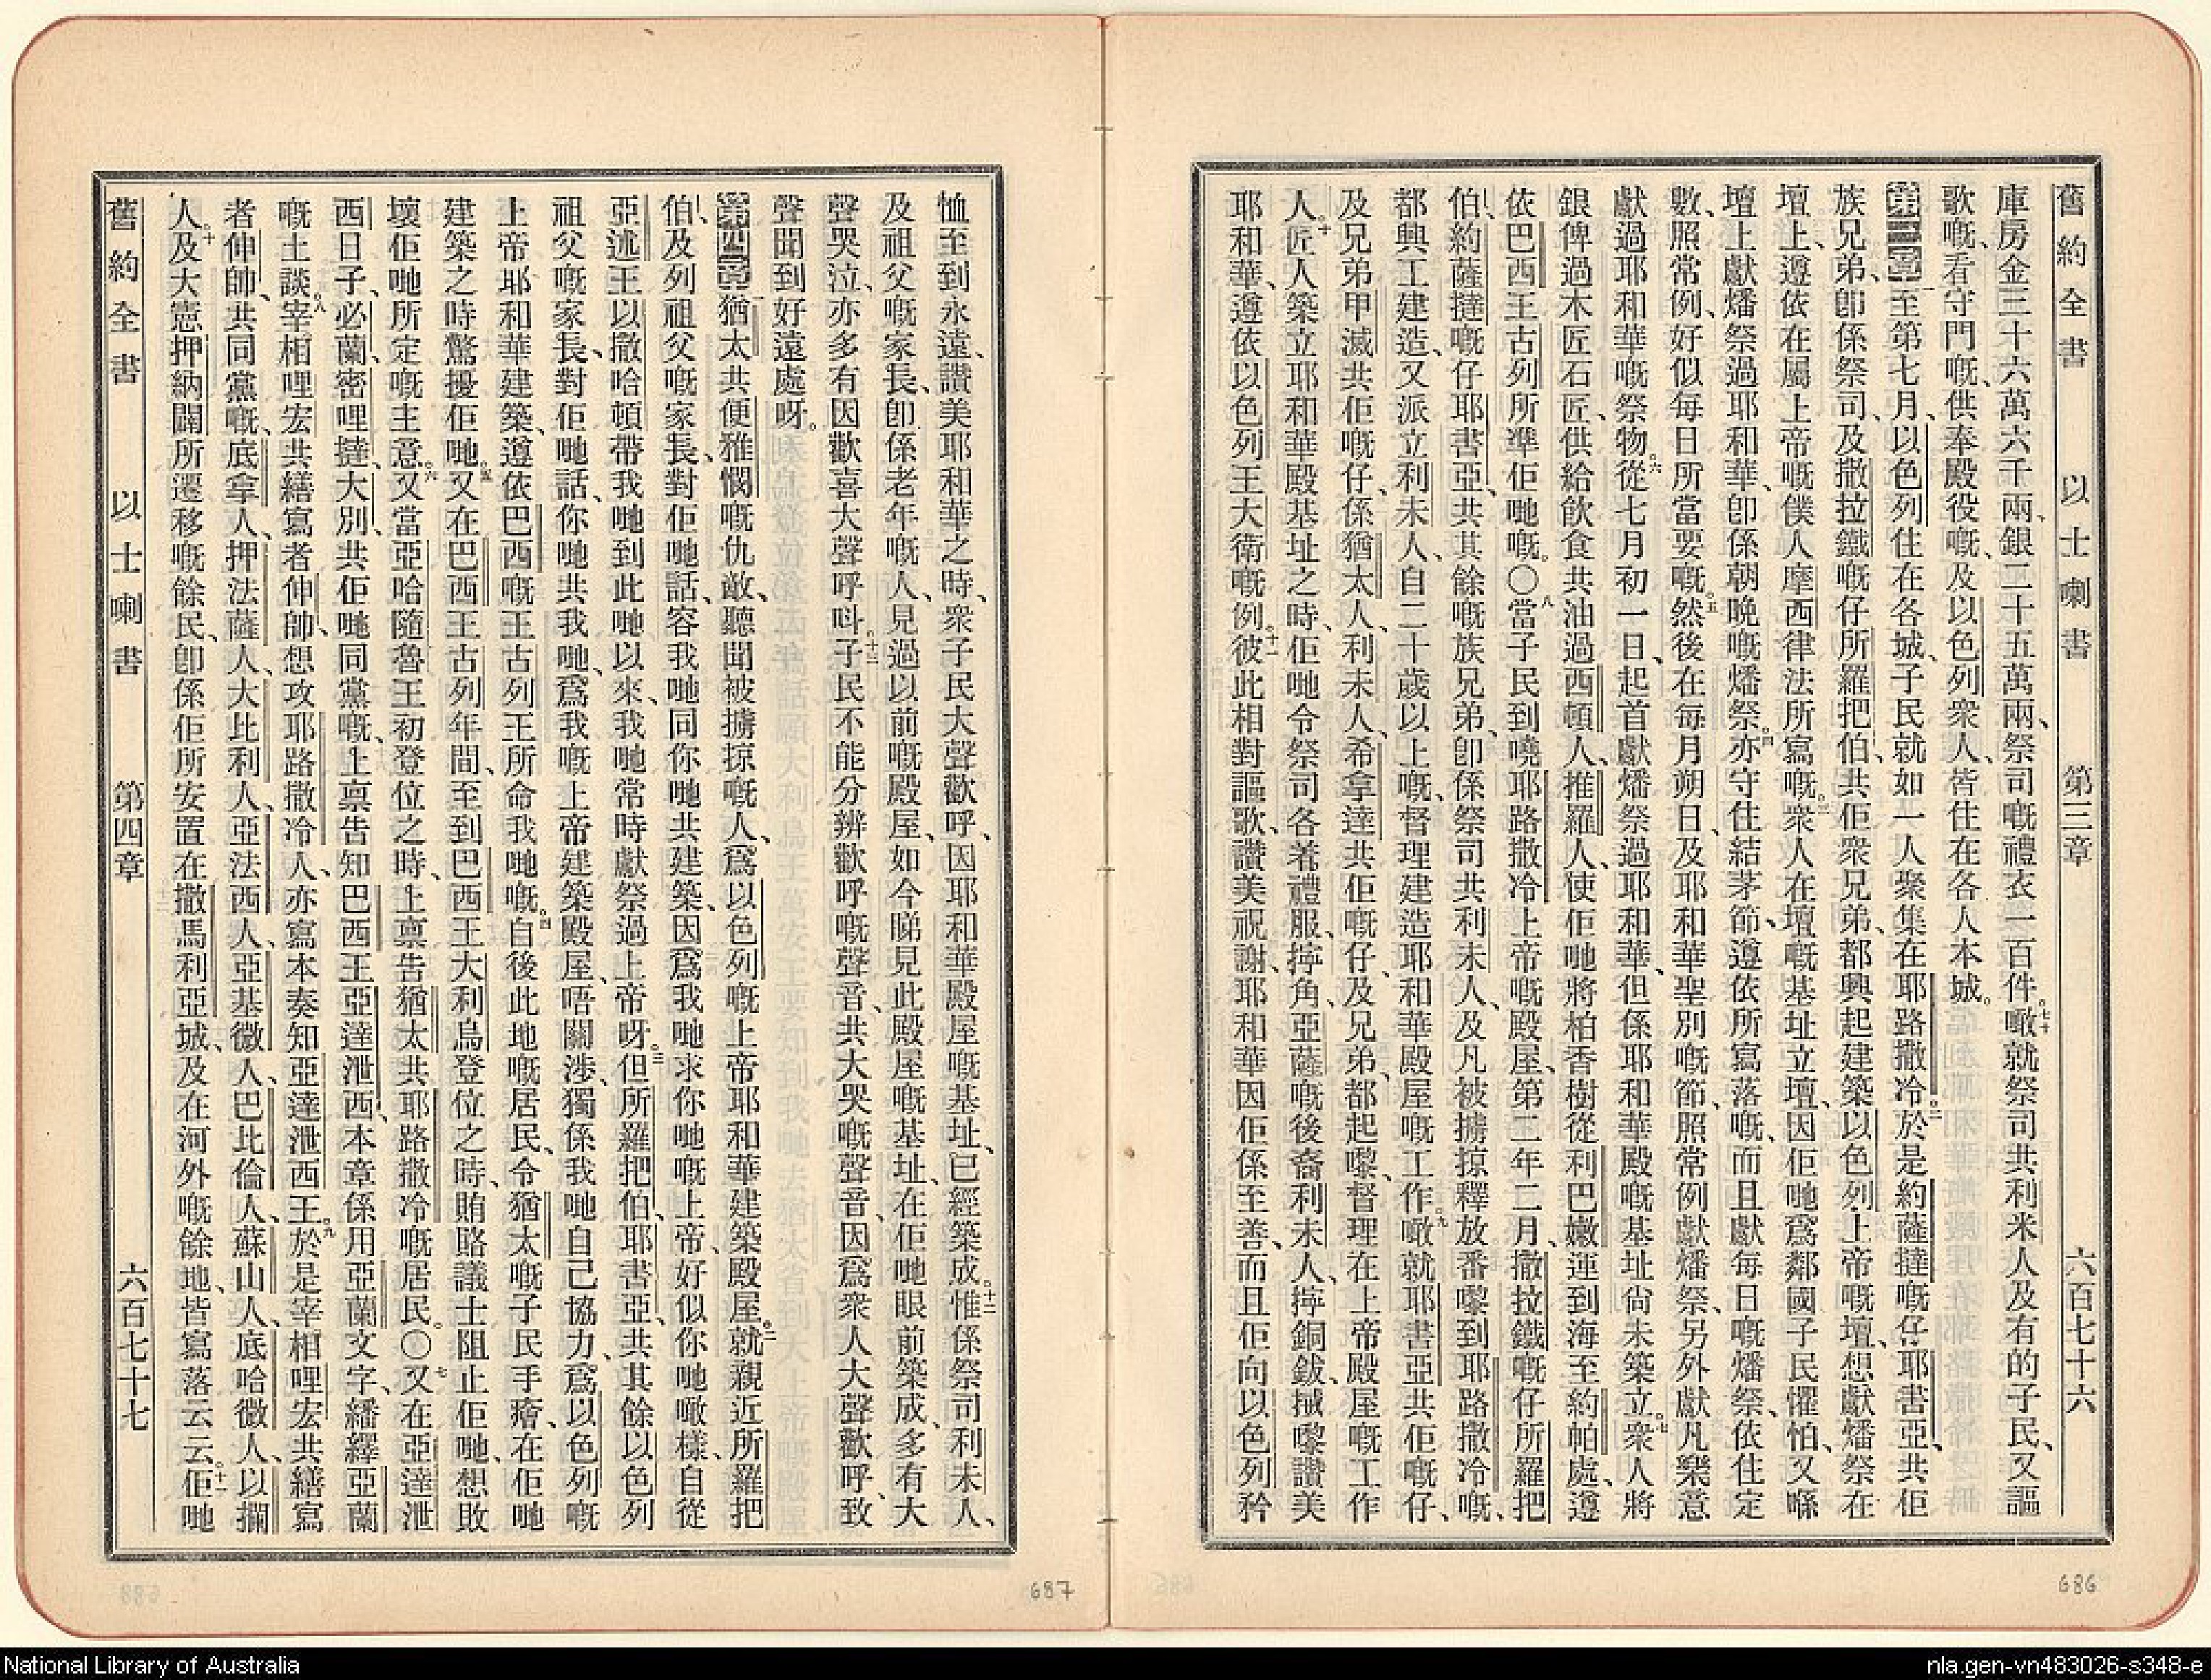 舊約全書　以士喇書　第三章　六百七十六
庫房金三十六萬六千兩、銀二十五萬兩、祭司嘅禮衣一百件。七十噉就祭司共利未人及有的子民、又謳
歌嘅、看守門嘅、供奉殿役嘅、及以色列衆人、皆住在各人本城。
第三章一至第七月、以色列住在各城、子民就如一人聚集在耶路撒冷。二於是約薩撻嘅仔耶書亞、共佢
族兄弟、卽係祭司、及撒拉鐵嘅仔所羅把伯、共佢衆兄弟、都興起建築以色列上帝嘅壇、想獻燔祭在
壇上、遵依在屬上帝嘅僕人摩西律法所寫嘅。三衆人在壇嘅基址立壇、因佢哋爲鄰國子民懼怕、又喺
壇上獻燔祭過耶和華、卽係朝晚嘅燔祭。四亦守住結茅節、遵依所寫落嘅、而且獻每日嘅燔祭、依住定
數、照常例、好似每日所當要嘅。五然後在每月朔日、及耶和華聖別嘅節、照常例獻燔祭、另外獻凡樂意
獻過耶和華嘅祭物。六從七月初一日、起首獻燔祭過耶和華、但係耶和華殿嘅基址尙未築立。七衆人將
銀俾過木匠石匠、供給飲食共油過西頓人、推羅人、使佢哋將柏香樹從利巴嫩運到海至約帕處、遵
依巴西王古列所準佢哋嘅。○八當子民到嘵耶路撒冷上帝嘅殿屋、第二年二月、撒拉鐵嘅仔所羅把
伯、約薩撻嘅仔耶書亞、共其餘嘅族兄弟、卽係祭司共利未人、及凡被擄掠釋放番嚟到耶路撒冷嘅、
都興工建造、又派立利未人、自二十歲以上嘅、督理建造耶和華殿屋嘅工作。九噉就耶書亞共佢嘅仔、
及兄弟甲滅共佢嘅仔、係猶太人、利未人、希拿達共佢嘅仔、及兄弟、都起嚟、督理在上帝殿屋嘅工作
人。十匠人築立耶和華殿基址之時、佢哋令祭司各着禮服、擰角、亞薩嘅後裔利未人、擰銅鈸、摵嚟讚美
耶和華、遵依以色列王大衛嘅例。十一彼此相對謳歌、讚美祝謝、耶和華因佢係至善、而且佢向以色列矜
恤至到永遠、讚美耶和華之時、衆子民大聲歡呼、因耶和華殿屋嘅基址、已經築成。十二惟係祭司利未人、
及祖父嘅家長、卽係老年嘅人、見過以前嘅殿屋、如今睇見此殿屋嘅基址、在佢哋眼前築成、多有大
聲哭泣、亦多有因歡喜大聲呼呌。十三子民不能分辨歡呼嘅聲音、共大哭嘅聲音、因爲衆人大聲歡呼、致
聲聞到好遠處呀。
第四章一猶太共便雅憫嘅仇敵、聽聞被擄掠嘅人、爲以色列嘅上帝耶和華建築殿屋。二就親近所羅把
伯、及列祖父嘅家長、對佢哋話、容我哋同你哋共建築、因爲我哋求你哋嘅上帝、好似你哋噉樣、自從
亞述王以撒哈頓帶我哋到此哋以來、我哋常時獻祭過上帝呀。三但所羅把伯、耶書亞、共其餘以色列
祖父嘅家長、對佢哋話、你哋共我哋、爲我嘅上帝建築殿屋、唔關涉、獨係我哋自己協力、爲以色列嘅
上帝耶和華建築、遵依巴西嘅王古列王所命我哋嘅。四自後此地嘅居民、令猶太嘅子民手瘠、在佢哋
建築之時驚擾佢哋。五又在巴西王古列年間、至到巴西王大利烏登位之時、賄賂議士阻止佢哋、想敗
壞佢哋所定嘅主意。六又當亞哈隨魯王初登位之時、上禀告猶太共耶路撒冷嘅居民。○七又在亞達泄
西日子、必蘭、密哩撻、大別、共佢哋同黨嘅、上禀告知巴西王亞達泄西、本章係用亞蘭文字、繙繹亞蘭
嘅土談。八宰相哩宏共繕寫者伸帥、想攻耶路撒冷人、亦寫本奏知亞達泄西王。九於是宰相哩宏共繕寫
者伸帥、共同黨嘅、底拿人、押法薩人、大比利人、亞法西人、亞基徵人、巴比倫人、蘇山人、底哈徵人、以攔
人。十及大憲押納闢所遷移嘅餘民、卽係佢所安置在撒馬利亞城、及在河外嘅餘地、皆寫落云云。十一佢哋
舊約全書　以士喇書　第四章　六百七十七
686
687
National Library of Australia
nla.gen-vn483026-s348-e